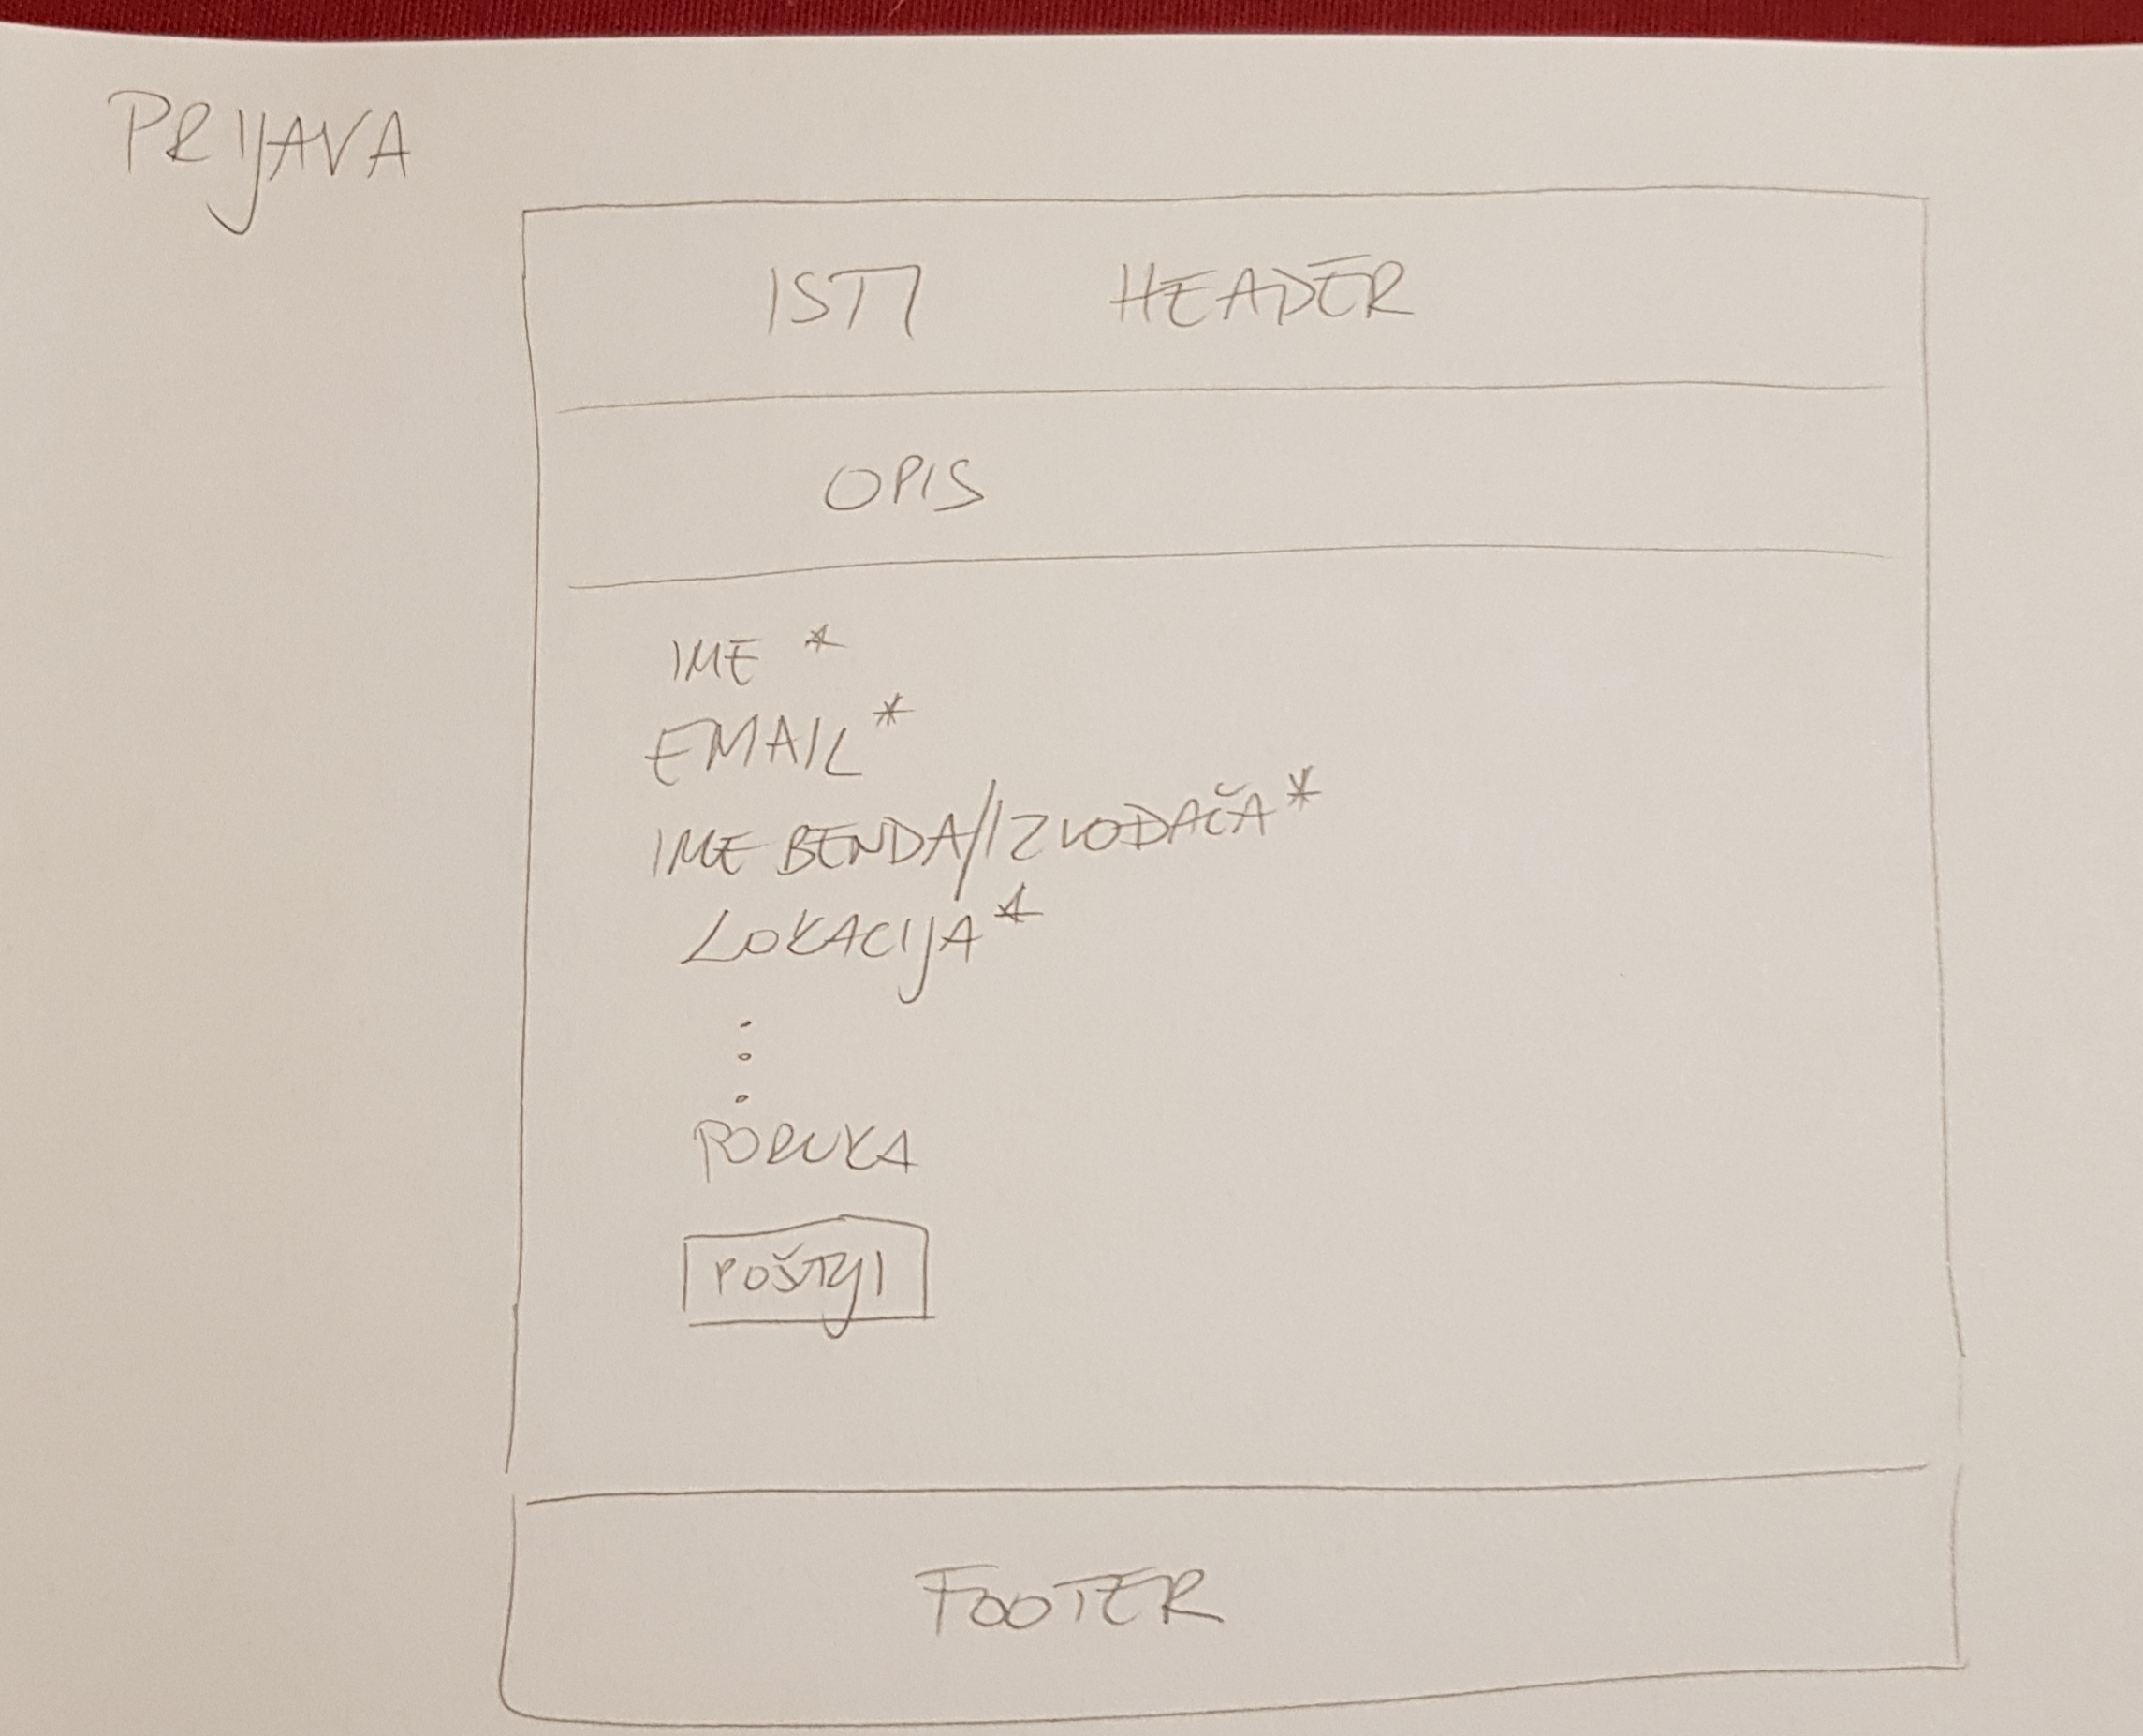 PRIJAVA
ISTI HEADER
OPIS
IME *
EMAIL *
IME BENDA/IZVOĐAČA *
LOKACIJA *
PORUKA
POŠTJI
FOOTER